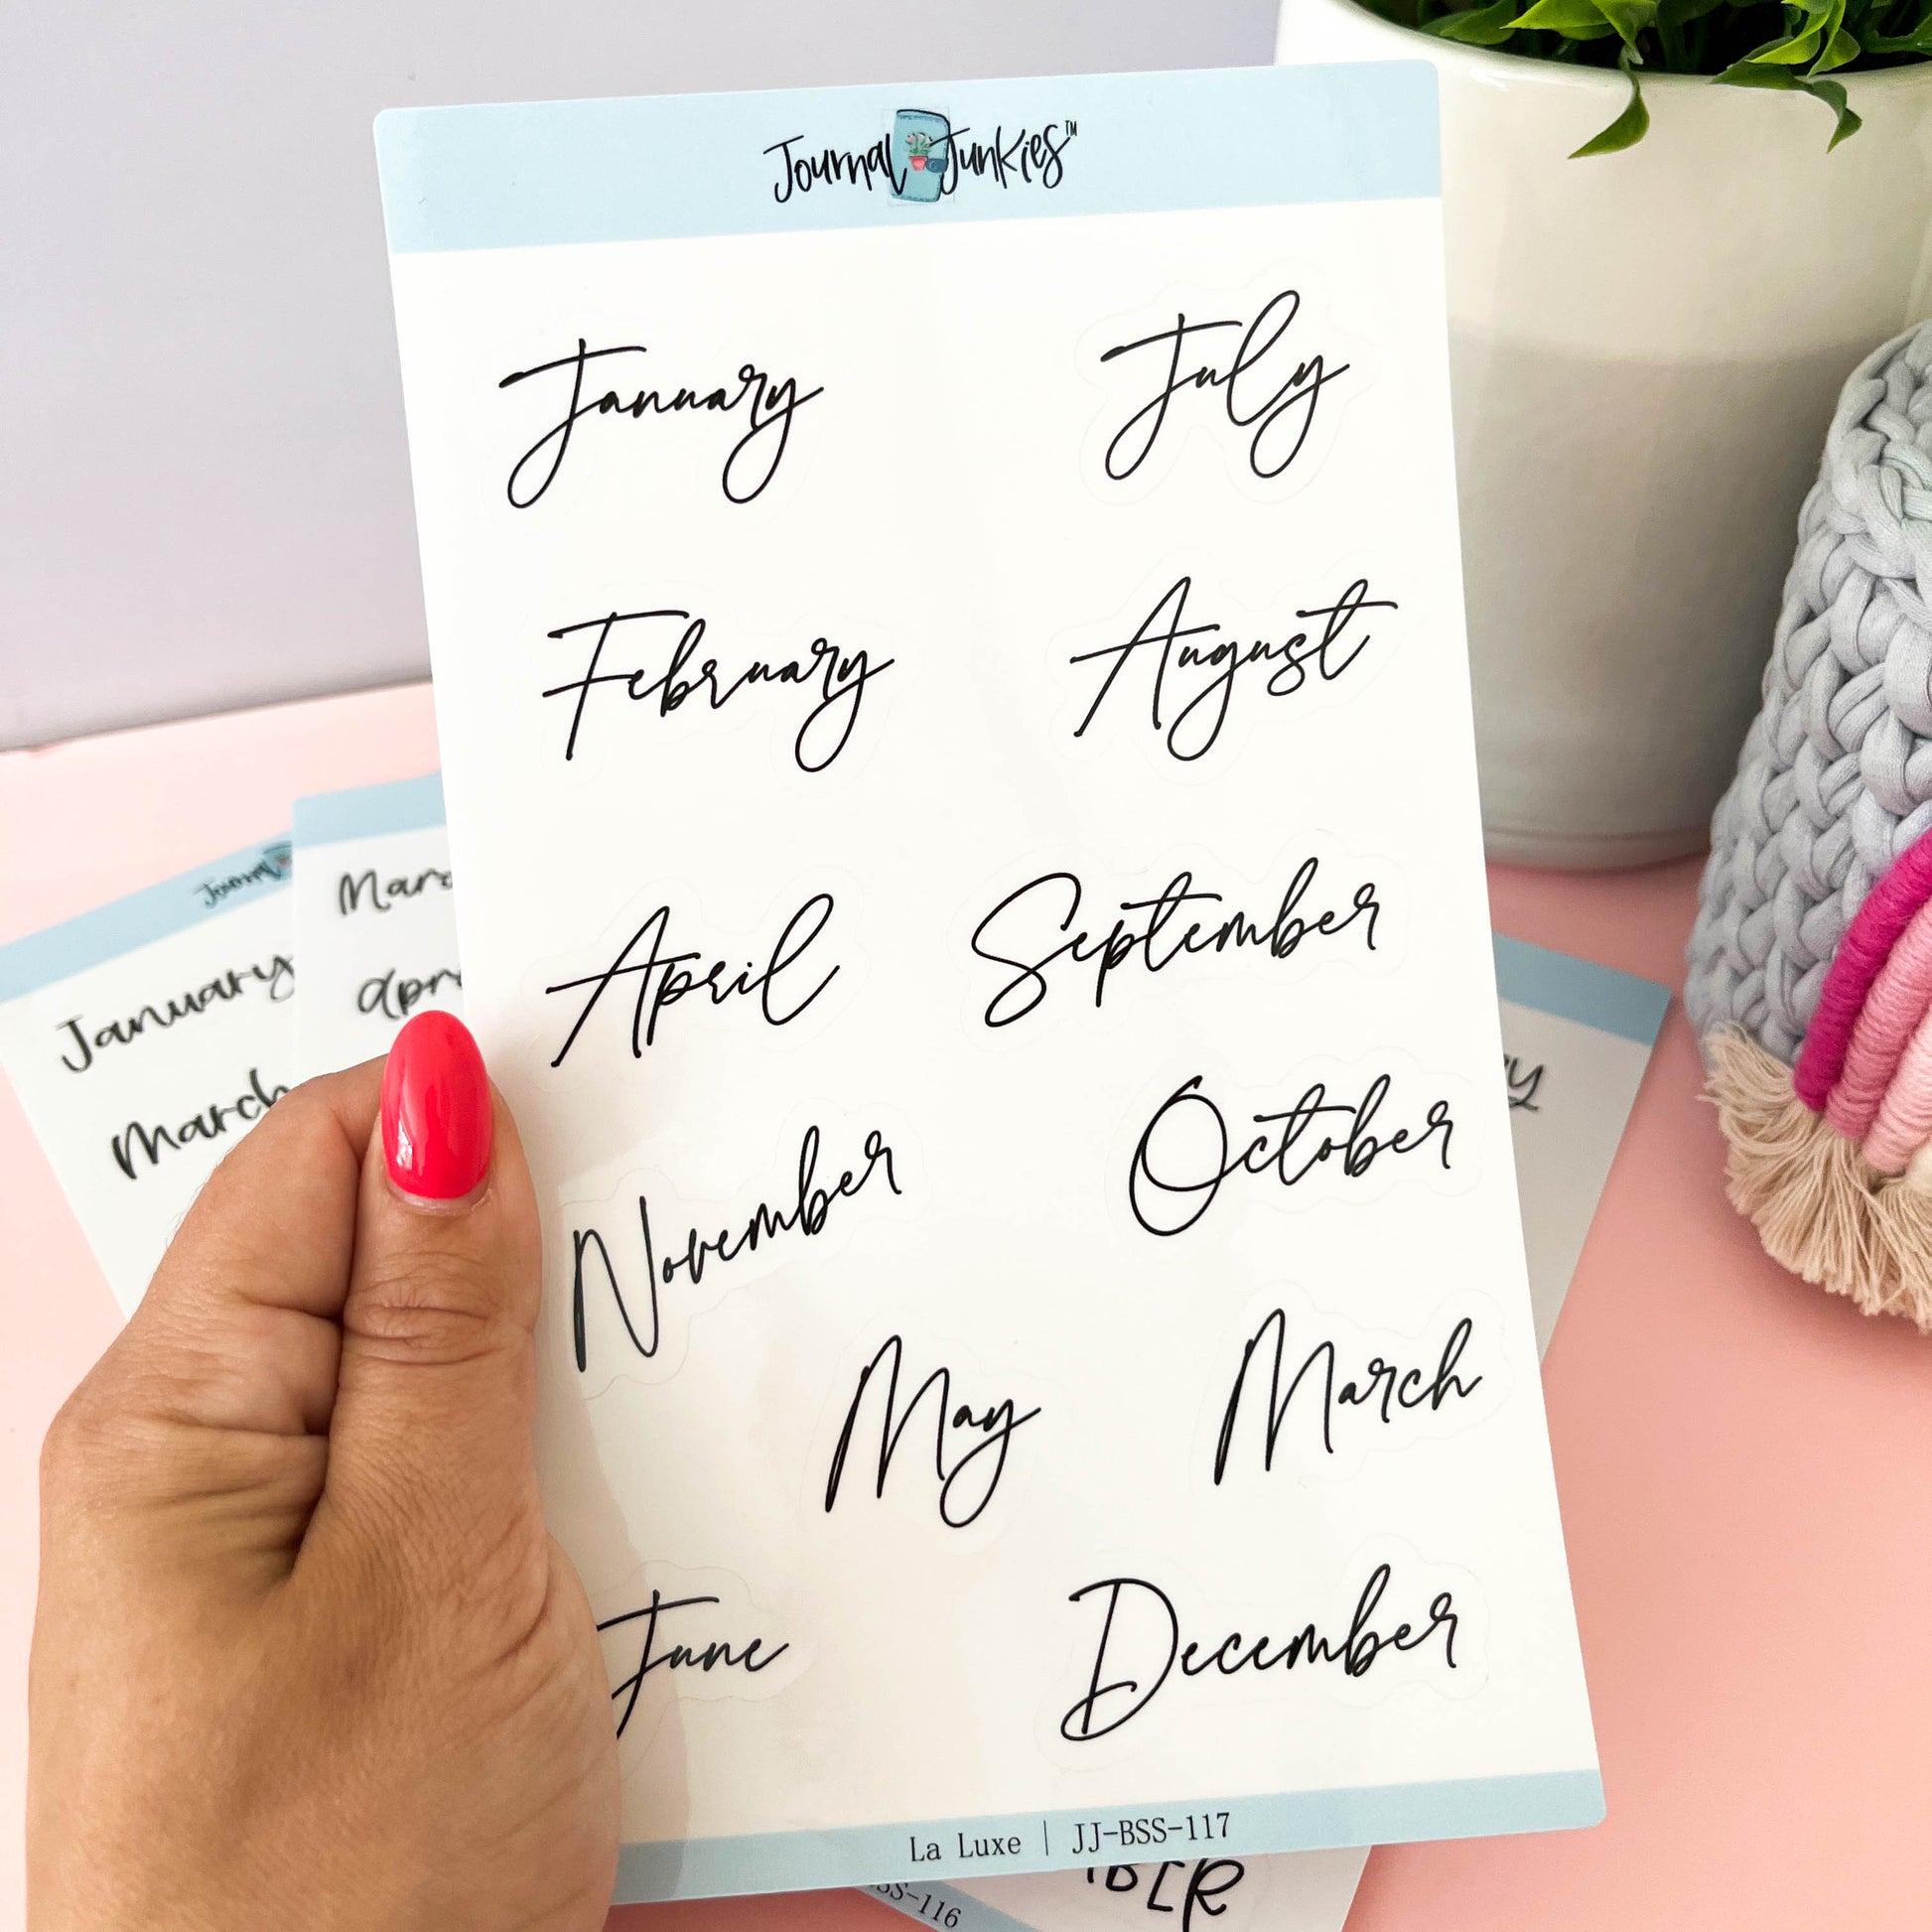 Journal Junkies™
January July
February August
April September
November October
May March
June December
La Luxe | JJ-BSS-117
Journal
January
March